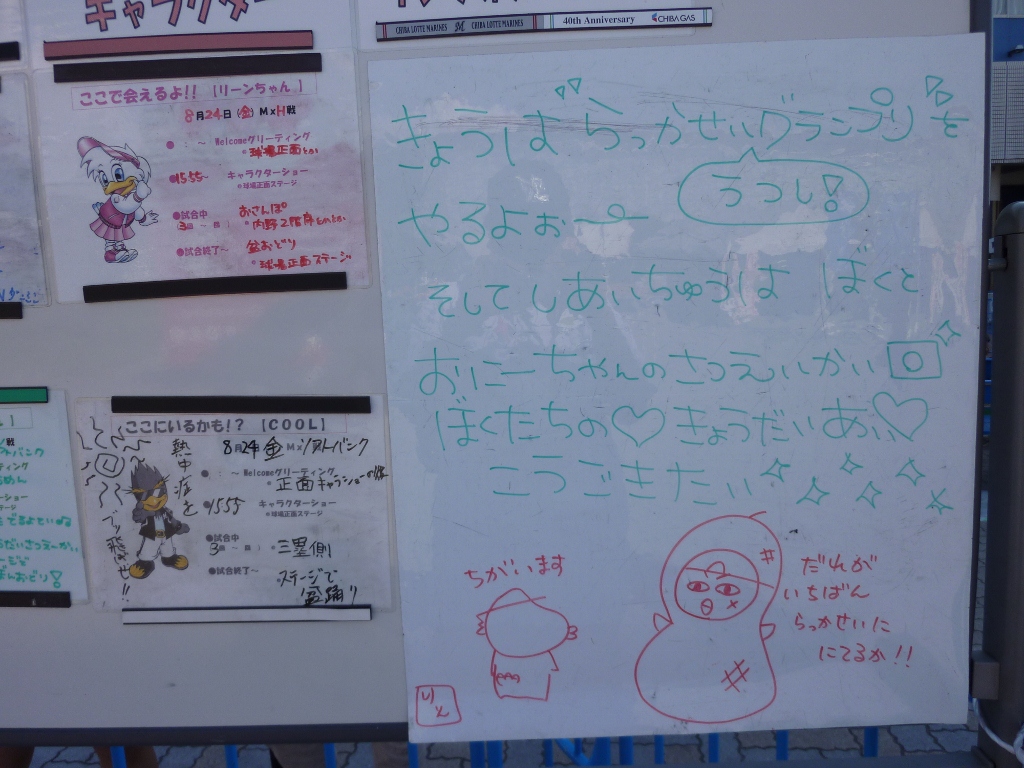 キャラクター
CHIBA LOTTE MARINES
CHIBA LOTTE MARINES
40th Anniversary
CHIBA GAS
ここで会えるよ!! 【リーンちゃん】
8月24日(金) M×H戦
● : ～ Welcomeグリーティング
*球場正面とか
●15:55～ キャラクターショー
*球場正面ステージ
●試合中 おさんぽ
3回～ 回)
*内野2階席とかとか
●試合終了～ 盆おどり
*球場正面ステージ
ここにいるかも!? 【COOL】
8月24日金 M×ソフトバンク
● : ～ Welcomeグリーティング
*正面キャラショーの後
●15:55 キャラクターショー
*球場正面ステージ
●試合中
3回～ 回)
*三塁側
●試合終了～
ステージで
盆踊り
熱中症を
ブッ飛ばせ!!
きょうは らっかせいグランプリを
うつし!
やるよぉー
そして しあいちゅうは ぼくと
おにーちゃんの さつえいかい
ぼくたちの♡きょうだいあい♡
こうごきたい
ちがいます
だれが
いちばん
らっかせいに
にてるか!!
りえ